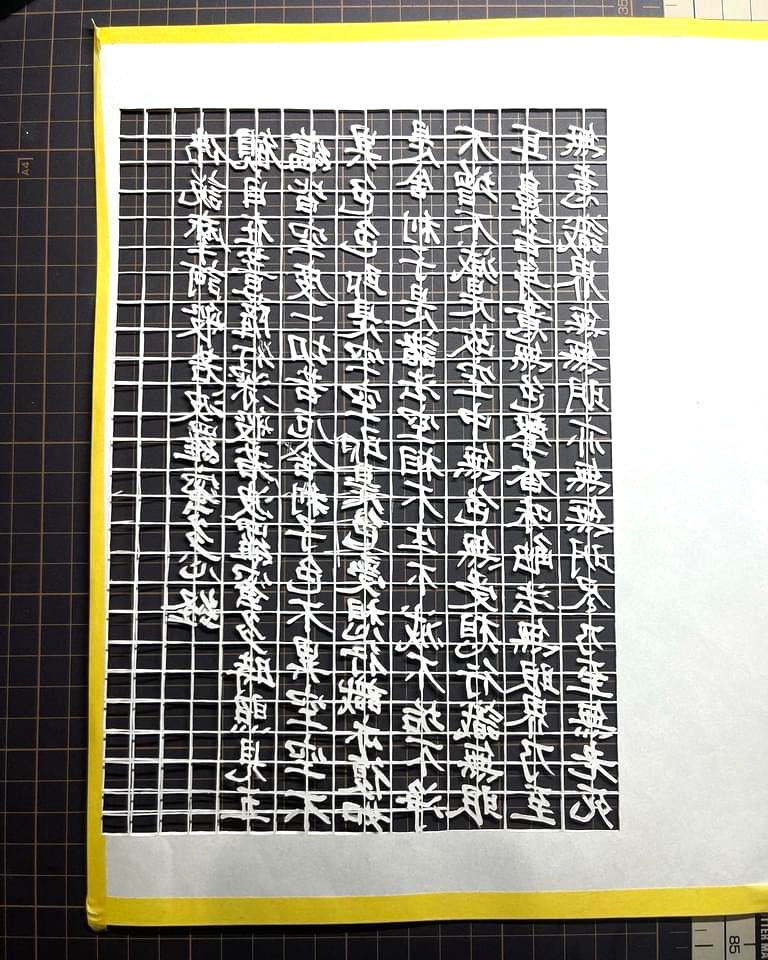 佛説摩訶般若波羅蜜多心經
觀自在菩薩行深般若波羅蜜多時照見五
蘊皆空度一切苦厄舍利子色不異空空不
異色色即是空空即是色受想行識亦復如
是舍利子是諸法空相不生不滅不垢不淨
不增不減是故空中無色無受想行識無眼
耳鼻舌身意無色聲香味觸法無眼界乃至
無意識界無無明亦無無明盡乃至無老死
A4
35
85